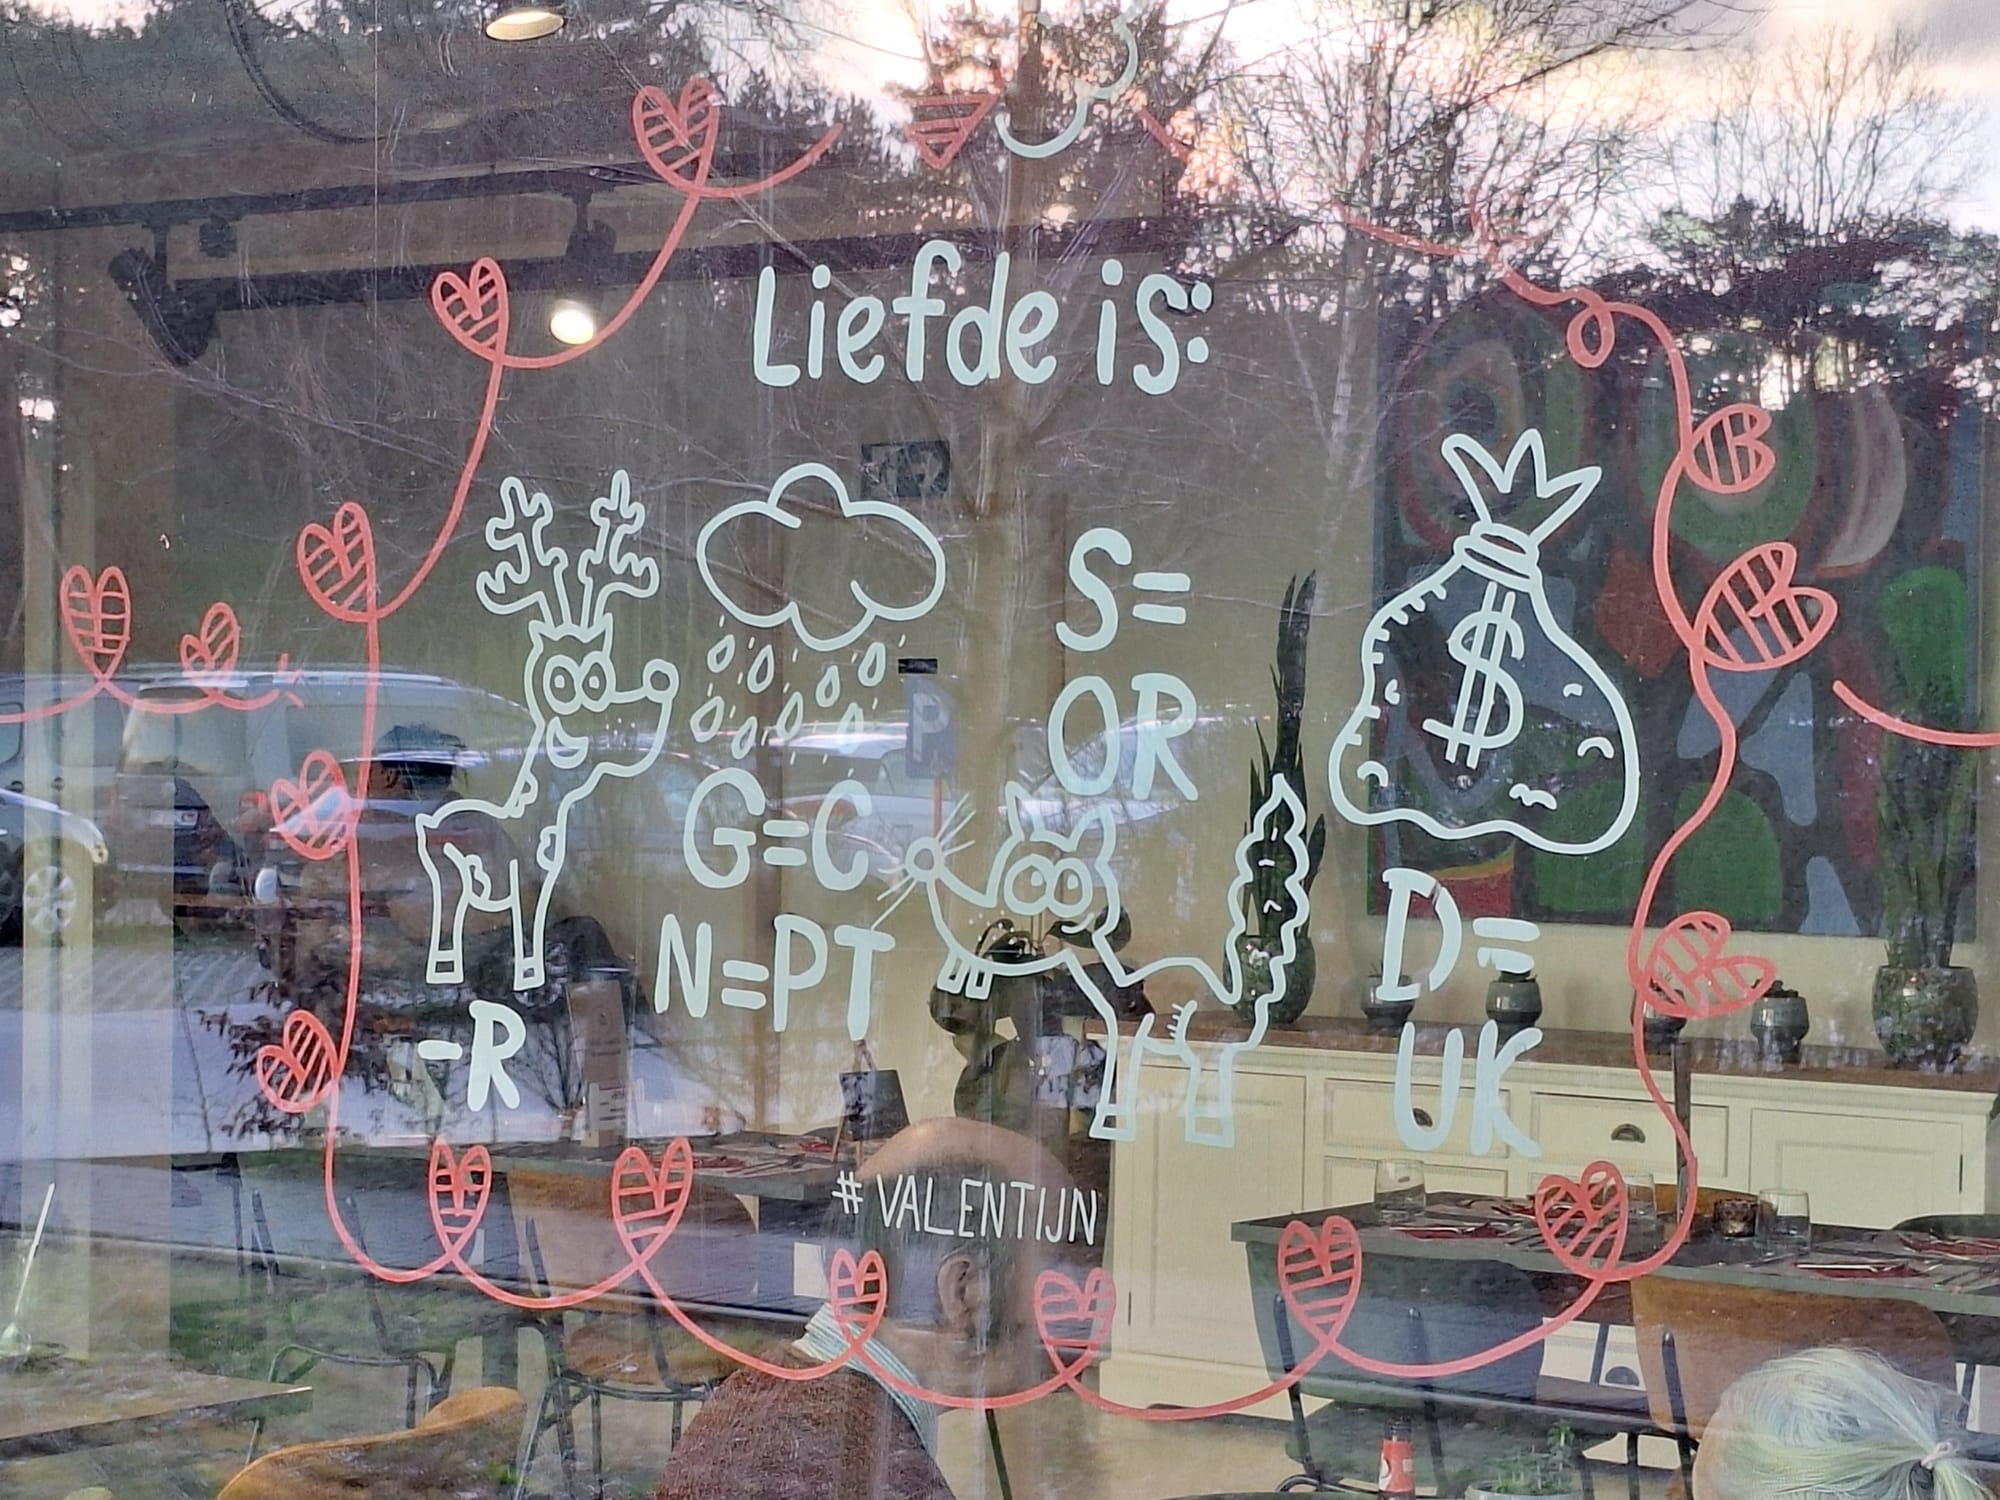 Liefde is:
S=
OR
$
G=C
N=PT
D=
UK
-R
# VALENTIJN
P